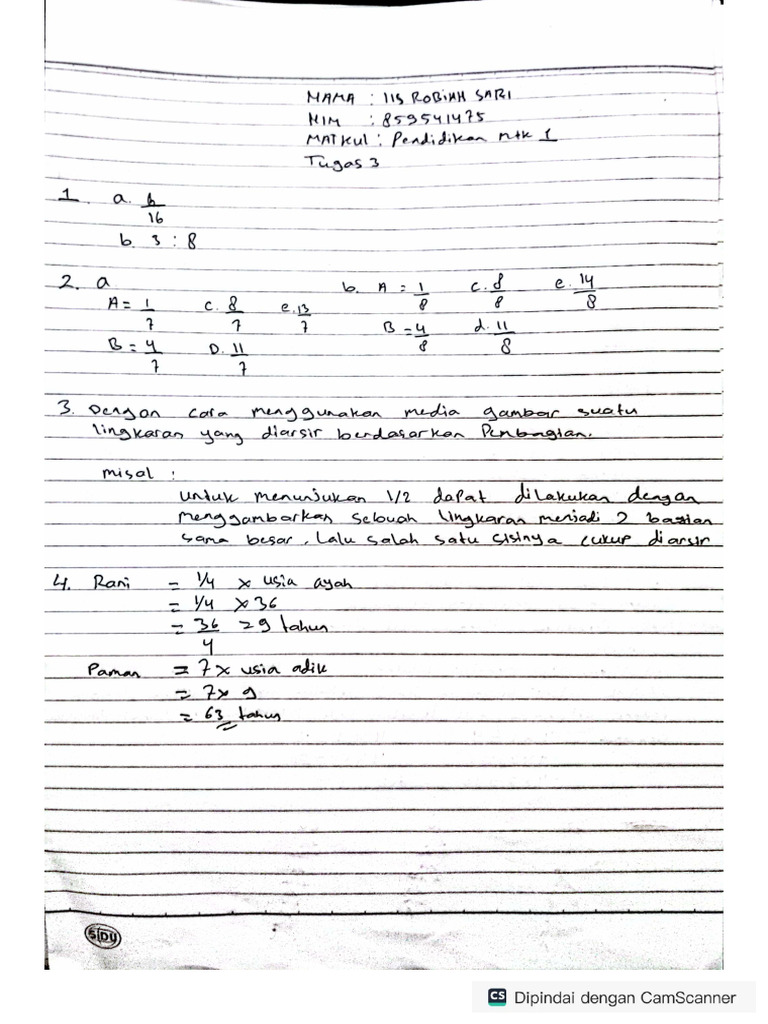 NAMA : IIS ROBIAH SARI
NIM : 859541475
MATKUL : Pendidikan mtk 1
Tugas 3
1. a. 6/16
b. 3 : 8
2. a b. A = 1/8 c. 8/8 e. 14/8
A = 1/7 c. 8/7 e. 13/7 B = 4/8 d. 11/8
B = 4/7 D. 11/7
3. Dengan cara menggunakan media gambar suatu
lingkaran yang diarsir berdasarkan Pembagian.
misal :
untuk menunjukan 1/2 dapat dilakukan dengan
menggambarkan sebuah lingkaran menjadi 2 bagian
sama besar, Lalu salah satu sisinya cukup diarsir
4. Rani = 1/4 x usia ayah
= 1/4 x 36
= 36/4 = 9 tahun
Paman = 7 x usia adik
= 7 x 9
= 63 tahun
SIDU
CS Dipindai dengan CamScanner